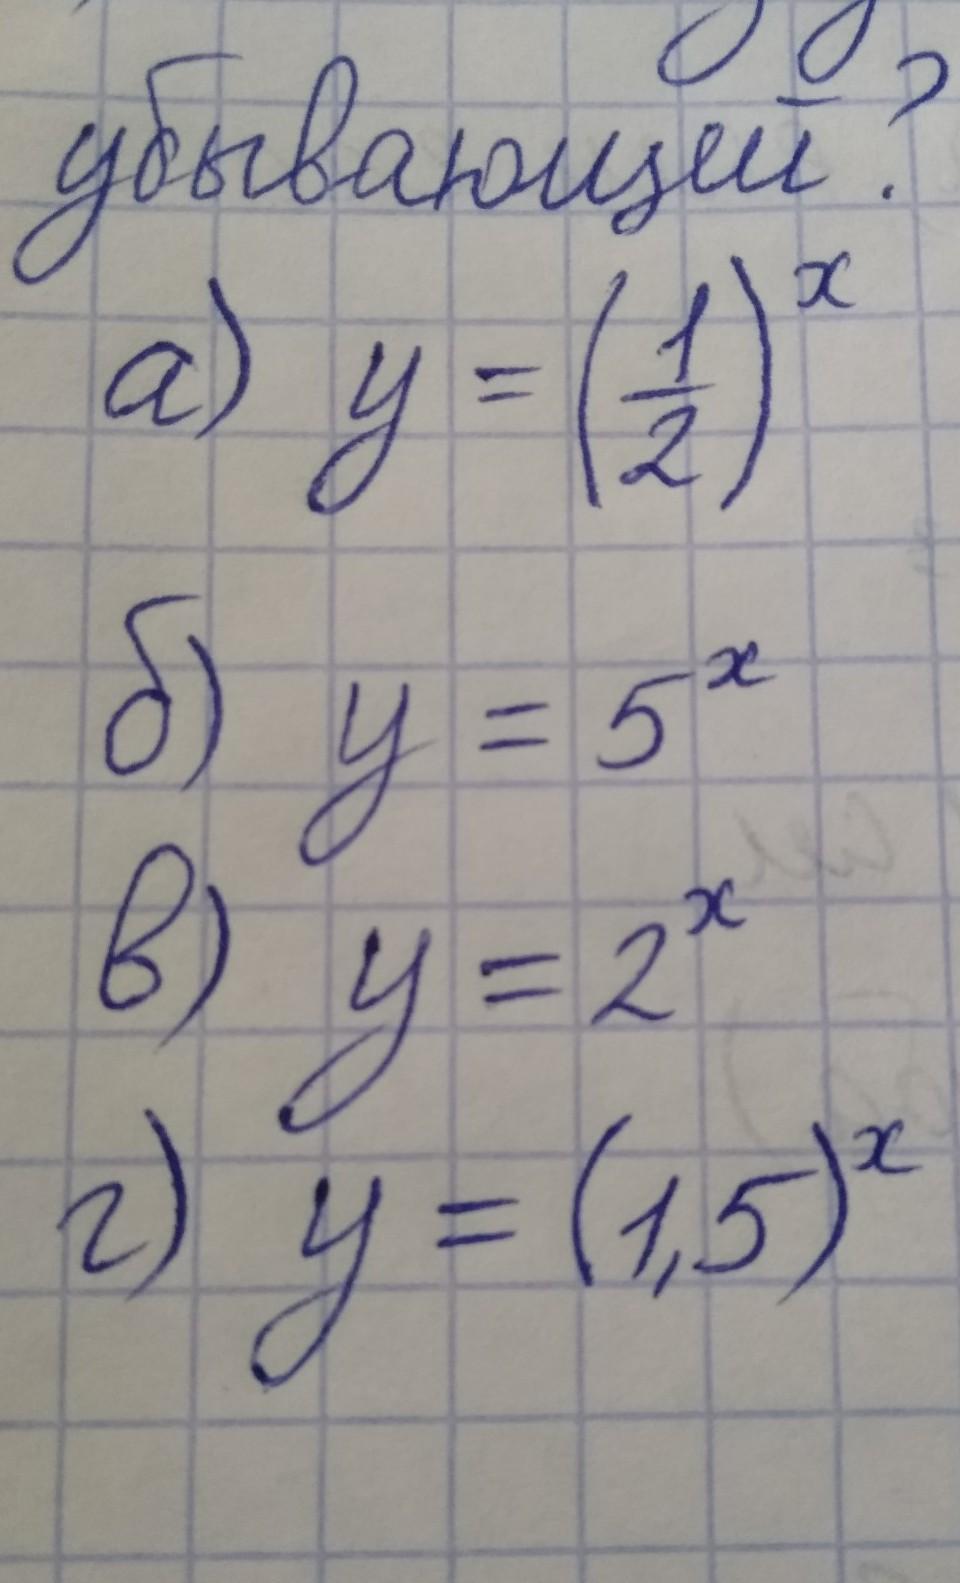 убывающей?
а) y = (1/2)^x
б) y = 5^x
в) y = 2^x
г) y = (1,5)^x